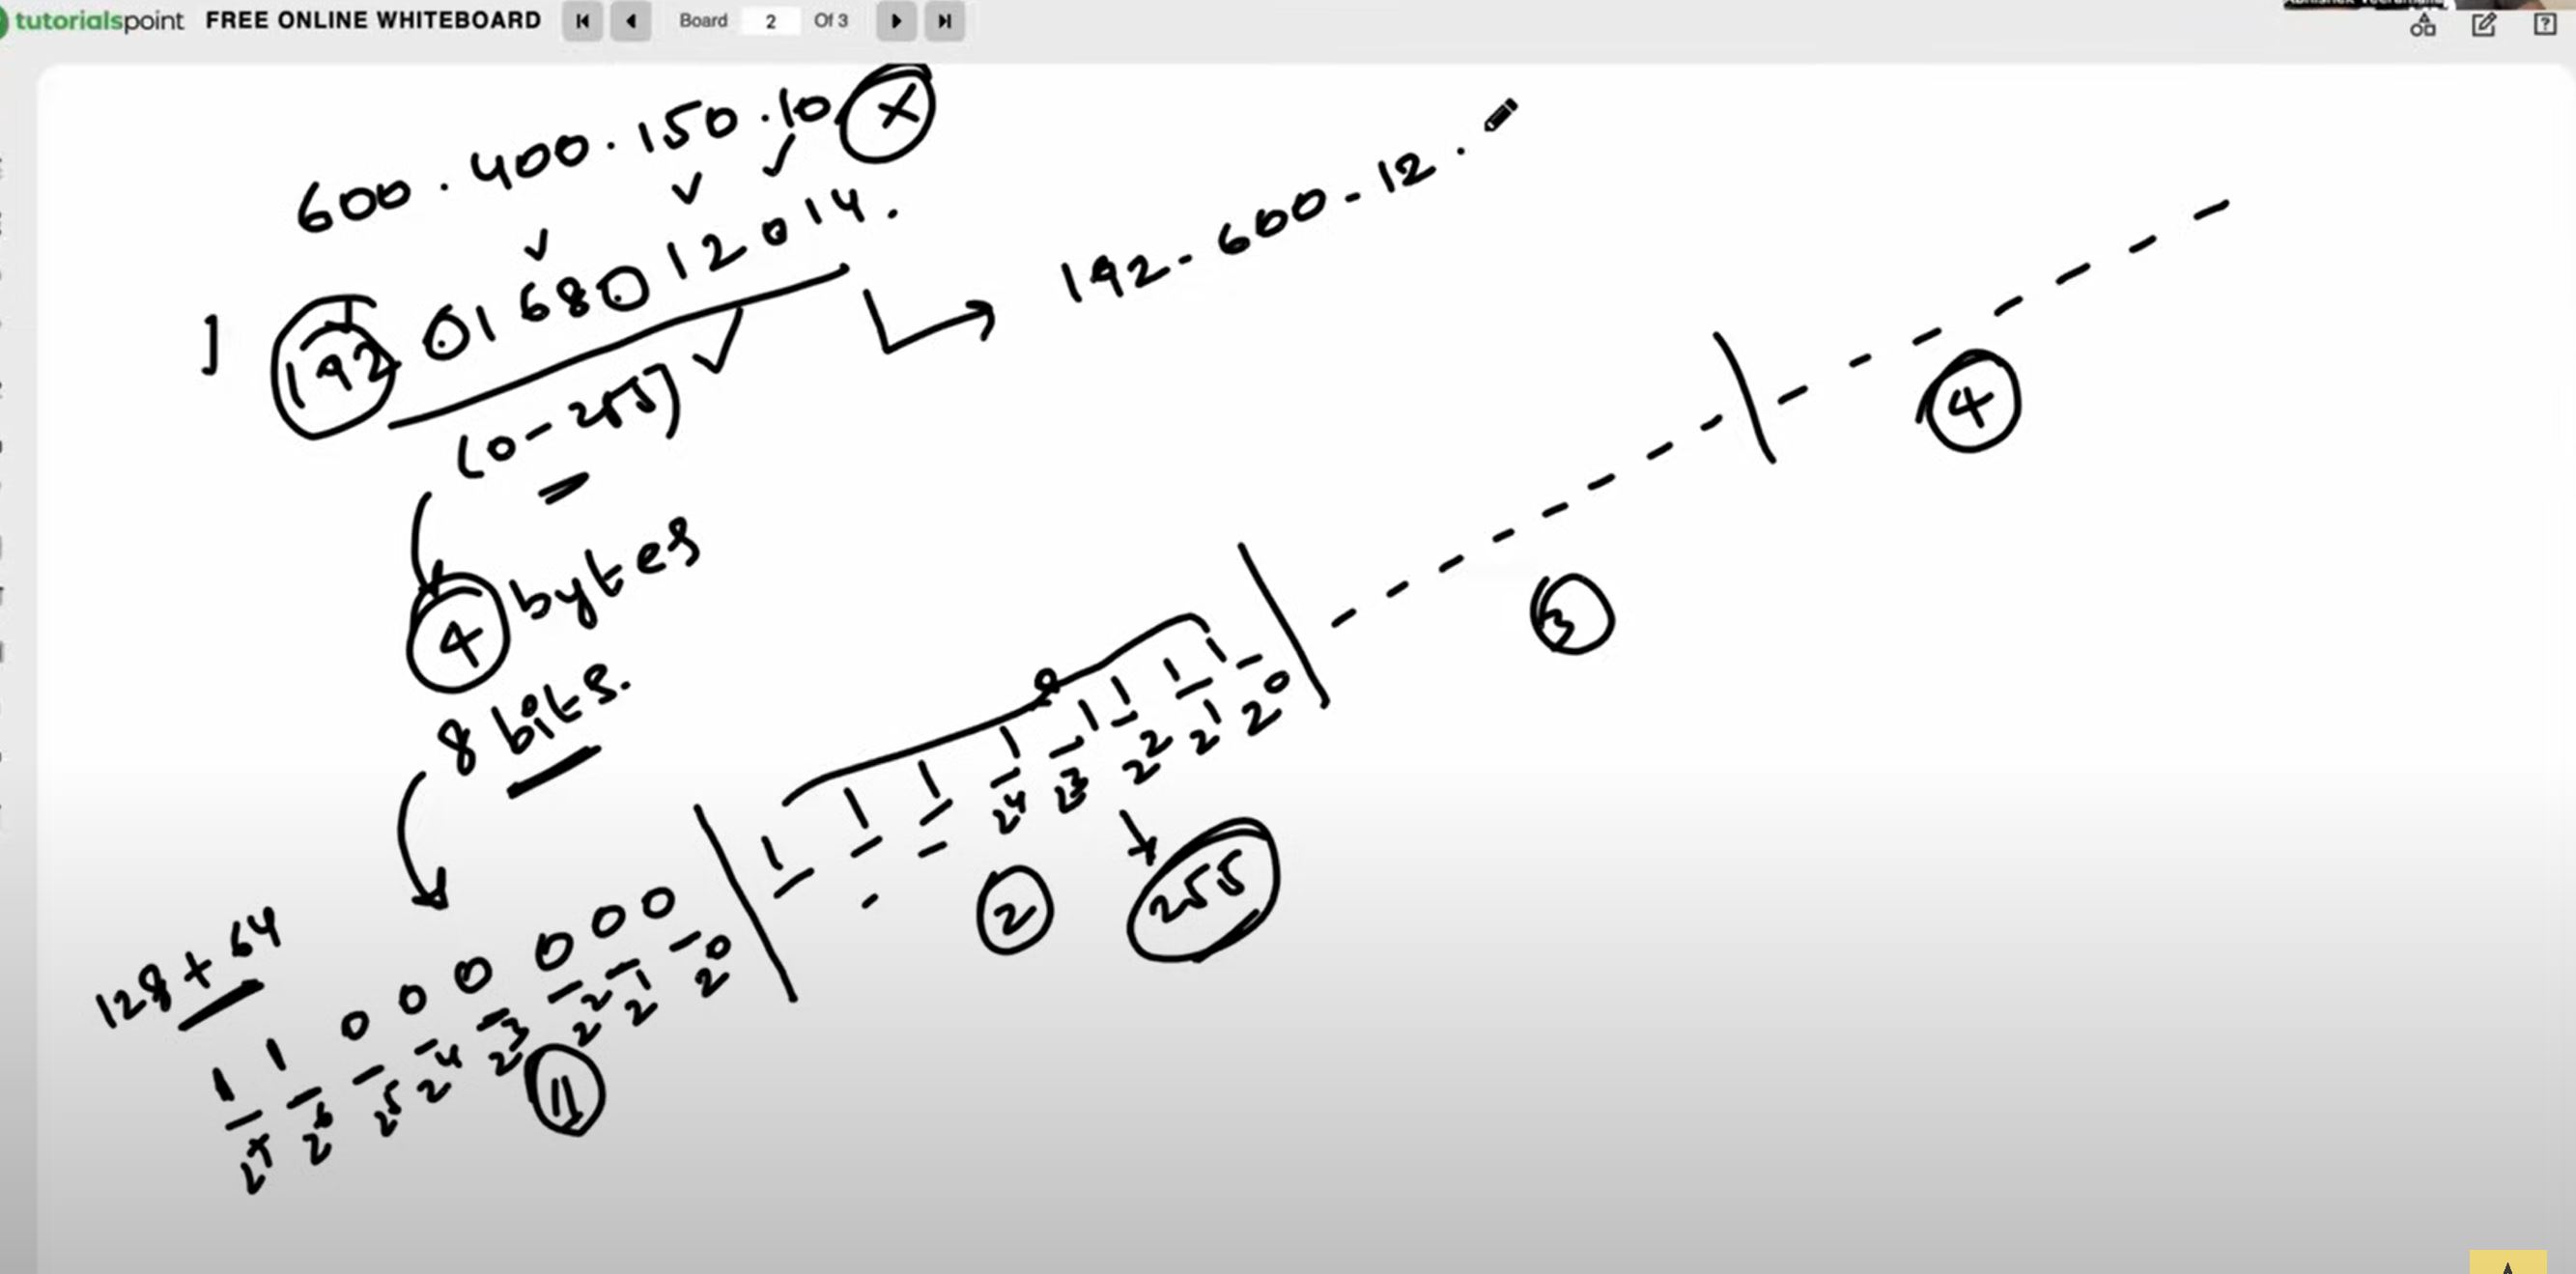 tutorialspoint FREE ONLINE WHITEBOARD Board 2 Of 3
600.400.150.10 X
192.168.12.14.
192.600.12.
(0-255)
4 bytes
8 bits.
128+64
1 1 0 0 0 0 0 0
2^7 2^6 2^5 2^4 2^3 2^2 2^1 2^0
1
1 1 1 1 1 1 1 1
2^4 2^3 2^2 2^1 2^0
2
255
3
4